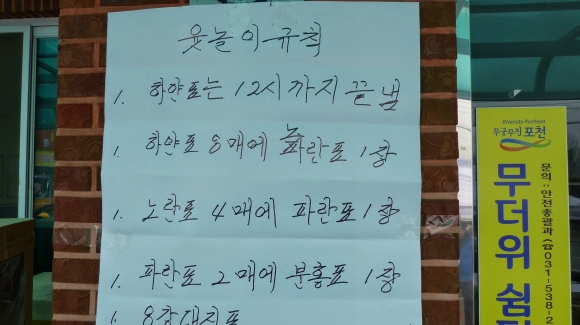 윷놀이규칙
1. 하얀표는 12시까지 끝냄
1. 하얀표 8매에 노란표 1장
1. 노란표 4매에 파란표 1장
1. 파란표 2매에 분홍표 1장
Diversity Pocheon
무궁무진 포천
무더위 쉼
문의 : 안전총괄과 (☎031-538-2